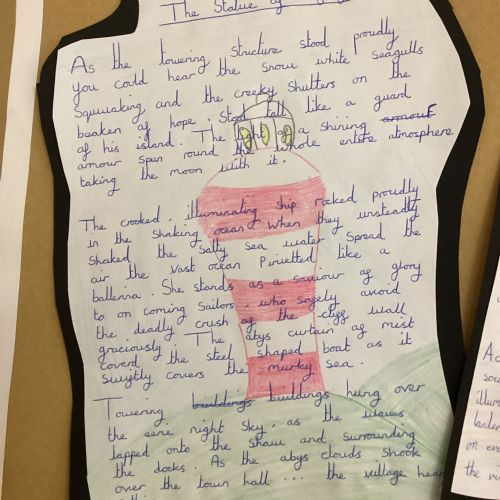 The Statue of
As the towering structure stood proudly
you could hear the snow white seagulls
Squwaking and the creeky shutters on the
beaken of hope. Stood tall like a guard
of his island. The light of a shining armour
armour spun round the whole entire atmosphere
taking the moon with it.
The crooked, illuminating ship rocked proudly
in the shaking ocean. When they unsteadly
Shaked the salty sea water Spread the
air the vast ocean Piriuetted like a
ballerina. She stands as a saviour of glory
to on coming Sailors, who safely avoid
the deadly crush of the cliff wall
graciously. The abys curtain of mist
coverd the steel shaped boat as it
swiftly covers the murky sea.
Towering buildings buildings hung over
the eerie night sky. as the waves
lapped onto the shaw and surrounding
the docks. As the abys clouds shook
over the town hall .... the village
Ac
illum
lanter
on
the